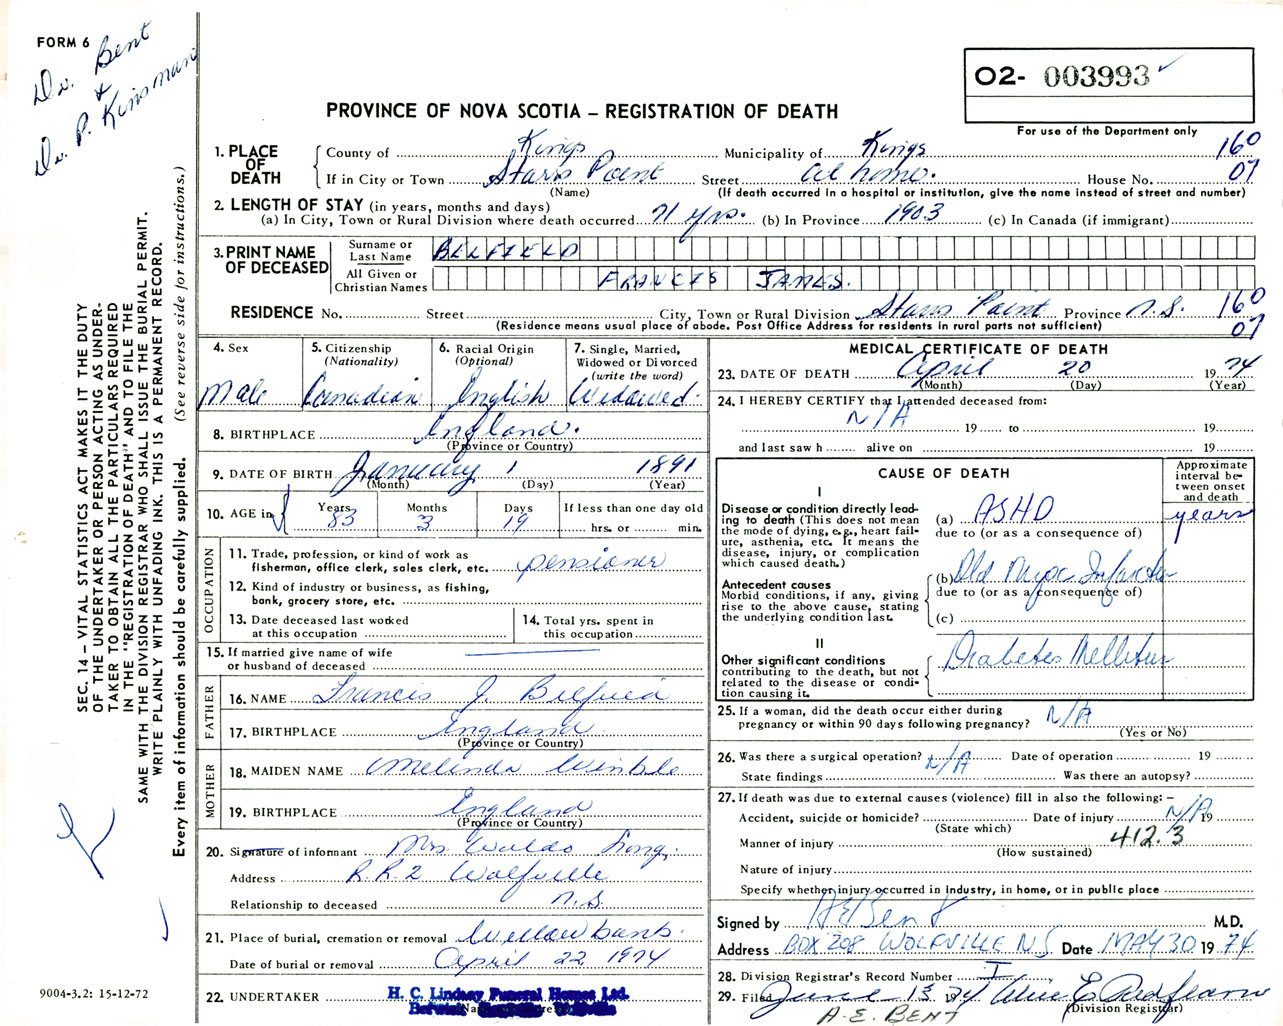 FORM 6
Dr. Bent
&
Dr. P. Kinsman
O2- 003993
For use of the Department only
PROVINCE OF NOVA SCOTIA – REGISTRATION OF DEATH
1. PLACE OF DEATH
County of Kings Municipality of Kings 160
If in City or Town Starrs Point Street at home. House No. 07
(Name) (If death occurred in a hospital or institution, give the name instead of street and number)
2. LENGTH OF STAY (in years, months and days)
(a) In City, Town or Rural Division where death occurred 71 yrs. (b) In Province 1903 (c) In Canada (if immigrant)
3. PRINT NAME OF DECEASED
Surname or Last Name BELFIELD
All Given or Christian Names FRANCIS JAMES.
RESIDENCE No. Street City, Town or Rural Division Starrs Point Province N.S. 160
(Residence means usual place of abode. Post Office Address for residents in rural parts not sufficient) 07
4. Sex
Male
5. Citizenship
(Nationality)
Canadian
6. Racial Origin
(Optional)
English
7. Single, Married,
Widowed or Divorced
(write the word)
Widowed.
8. BIRTHPLACE England.
(Province or Country)
9. DATE OF BIRTH January 1 1891
(Month) (Day) (Year)
10. AGE in
Years 83
Months 3
Days 19
If less than one day old
hrs. or min.
OCCUPATION
11. Trade, profession, or kind of work as
fisherman, office clerk, sales clerk, etc. pensioner
12. Kind of industry or business, as fishing,
bank, grocery store, etc.
13. Date deceased last worked
at this occupation
14. Total yrs. spent in
this occupation
15. If married give name of wife
or husband of deceased
FATHER
16. NAME Francis J.
17. BIRTHPLACE England
(Province or Country)
MOTHER
18. MAIDEN NAME Melinda Winkle
19. BIRTHPLACE England
(Province or Country)
20. Signature of informant Mrs Waldo Long.
Address R.R.2 Wolfville
Relationship to deceased N.S.
21. Place of burial, cremation or removal Willowbank.
Date of burial or removal April 22 1974
22. UNDERTAKER H. C. Lindsay Funeral Homes Ltd.
MEDICAL CERTIFICATE OF DEATH
23. DATE OF DEATH April 20 1974
(Month) (Day) (Year)
24. I HEREBY CERTIFY that I attended deceased from:
N/A 19 to 19
and last saw h alive on 19
CAUSE OF DEATH
Approximate interval between onset and death
I
Disease or condition directly leading to death (This does not mean the mode of dying, e.g., heart failure, asthenia, etc. It means the disease, injury, or complication which caused death.)
(a) ASHD years
due to (or as a consequence of)
Antecedent causes
Morbid conditions, if any, giving rise to the above cause, stating the underlying condition last.
(b) Old Myoc Infarction
due to (or as a consequence of)
(c)
II
Other significant conditions
contributing to the death, but not related to the disease or condition causing it.
Diabetes Mellitus
25. If a woman, did the death occur either during
pregnancy or within 90 days following pregnancy? N/A
(Yes or No)
26. Was there a surgical operation? N/A Date of operation 19
State findings Was there an autopsy?
27. If death was due to external causes (violence) fill in also the following: –
Accident, suicide or homicide? Date of injury N/A 19
(State which)
Manner of injury 412.3
(How sustained)
Nature of injury
Specify whether injury occurred in industry, in home, or in public place
Signed by A E Bent M.D.
Address BOX 208 WOLFVILLE NS Date MAY 30 1974
28. Division Registrar's Record Number I
29. Filed June 13 1974
(Division Registrar)
A. E. BENT
SEC. 14 – VITAL STATISTICS ACT MAKES IT THE DUTY
OF THE UNDERTAKER OR PERSON ACTING AS UNDER-
TAKER TO OBTAIN ALL THE PARTICULARS REQUIRED
IN THE "REGISTRATION OF DEATH" AND TO FILE THE
SAME WITH THE DIVISION REGISTRAR WHO SHALL ISSUE THE BURIAL PERMIT.
WRITE PLAINLY WITH UNFADING INK. THIS IS A PERMANENT RECORD.
Every item of information should be carefully supplied. (See reverse side for instructions.)
9004-3.2: 15-12-72